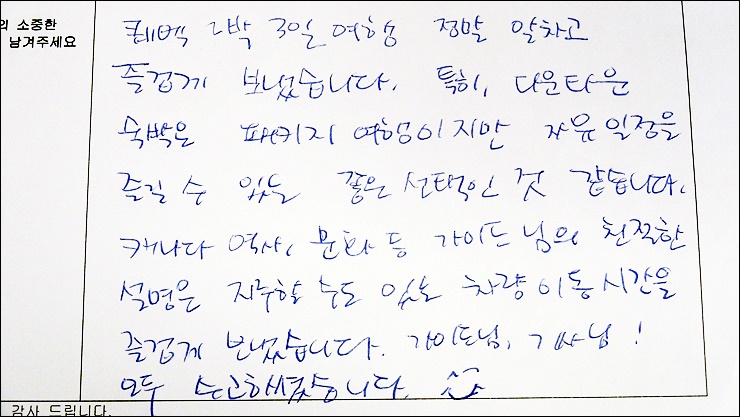 의 소중한
남겨주세요
퀘벡 2박 3일 여행 정말 알차고
즐겁게 보냈습니다. 특히, 다운타운
숙박은 패키지 여행이지만 자유일정을
즐길 수 있는 좋은 선택인 것 같습니다.
캐나다 역사, 문화 등 가이드님의 친절한
설명은 지루할 수도 있는 차량이동시간을
즐겁게 보냈습니다. 가이드님, 기사님!
모두 수고하셨습니다.
감사 드립니다.